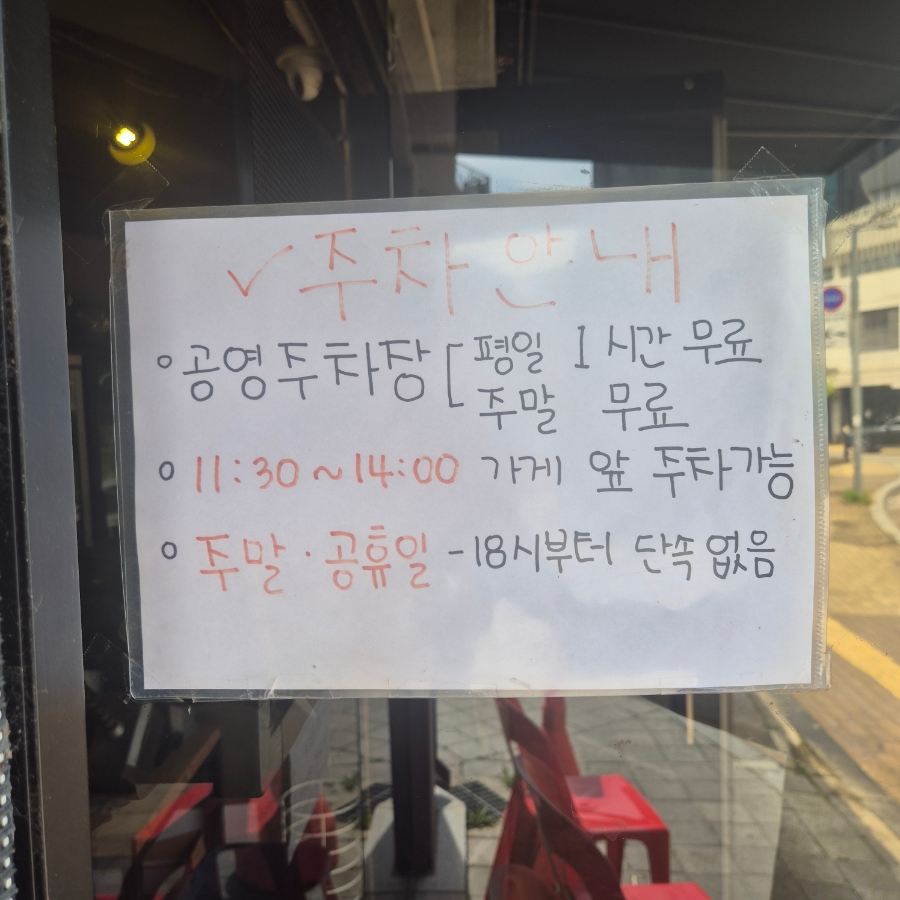 ✓주차안내
○ 공영주차장 [ 평일 1시간 무료
주말 무료
○ 11:30 ~ 14:00 가게 앞 주차가능
○ 주말·공휴일 - 18시부터 단속 없음